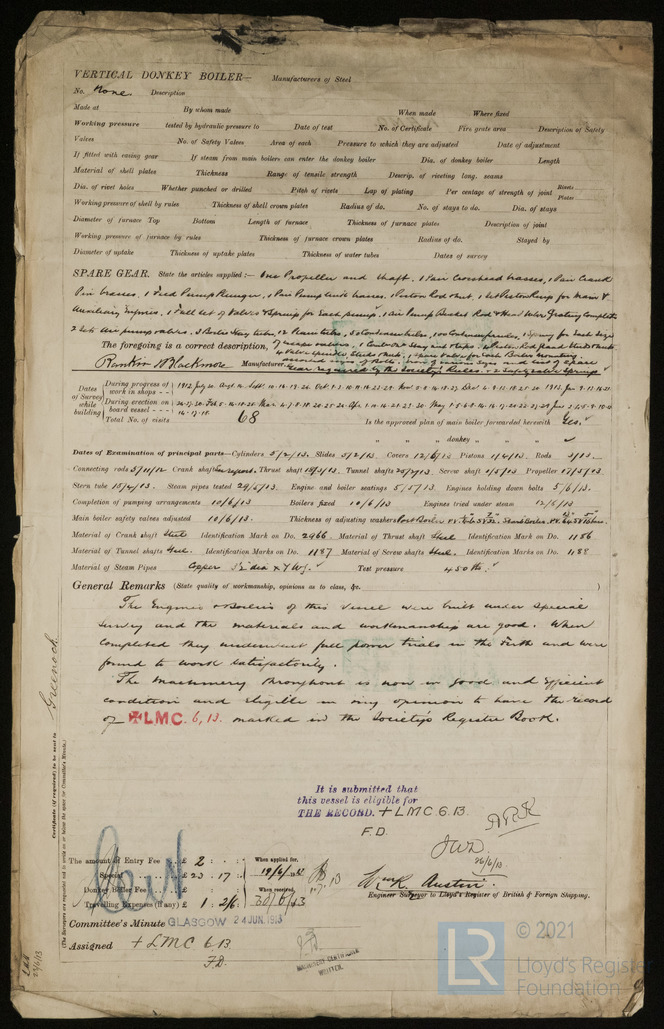 VERTICAL DONKEY BOILER— Manufacturers of Steel
No. None. Description
Made at By whom made When made Where fixed
Working pressure tested by hydraulic pressure to Date of test No. of Certificate Fire grate area Description of Safety
Valves No. of Safety Valves Area of each Pressure to which they are adjusted Date of adjustment
If fitted with casing gear If steam from main boilers can enter the donkey boiler Dia. of donkey boiler Length
Material of shell plates Thickness Range of tensile strength Descrip. of riveting long. seams
Dia. of rivet holes Whether punched or drilled Pitch of rivets Lap of plating Per centage of strength of joint Rivets
Plates
Working pressure of shell by rules Thickness of shell crown plates Radius of do. No. of stays to do. Dia. of stays
Diameter of furnace Top Bottom Length of furnace Thickness of furnace plates Description of joint
Working pressure of furnace by rules Thickness of furnace crown plates Radius of do. Stayed by
Diameter of uptake Thickness of uptake plates Thickness of water tubes Dates of survey
SPARE GEAR. State the articles supplied:— One Propeller and shaft. 1 Pair Crosshead brasses, 1 Pair Crank
Pin brasses. 1 Feed Pump Plunger, 1 Pair Pump brasses. Piston Rod & nut. 1 set Piston Rings for Main &
Auxiliary Engines, 1 Full set of Valves & Springs for Each pump, 1 Air Pump Bucket Rod & Head Valve Grating Complete
2 Sets Air pump valves. 3 Boiler Stay tubes, 12 Plain tubes, 50 Condenser tubes, 100 Condenser ferrules. 1 Spring for Each Size
The foregoing is a correct description,
of escape valves,
4 Valve spindle Studs & Nuts, 1 spare valve for Each Boiler Mounting.
Rankin & Blackmore Manufacturer.
gear required by the Society's Rules. 2 Safety valve Springs
Dates of Survey while building
During progress of work in shops - -
During erection on board vessel - - -
Total No. of visits 68
Is the approved plan of main boiler forwarded herewith Yes.
" " " donkey " "
Dates of Examination of principal parts—Cylinders 5/2/13. Slides 5/2/13. Covers 12/6/13 Pistons 1/4/13. Rods
Connecting rods 5/11/12 Crank shaft Thrust shaft 18/3/13. Tunnel shafts 25/2/13. Screw shaft 1/5/13 Propeller 17/5/13
Stern tube 15/4/13. Steam pipes tested 29/5/13. Engine and boiler seatings 5/5/13. Engines holding down bolts 5/6/13.
Completion of pumping arrangements 10/6/13 Boilers fixed 10/6/13 Engines tried under steam 12/6/13
Main boiler safety valves adjusted 10/6/13. Thickness of adjusting washers Port Boiler
Material of Crank shaft Steel Identification Mark on Do. 2966 Material of Thrust shaft Steel Identification Mark on Do. 1186
Material of Tunnel shafts Steel. Identification Marks on Do. 1187 Material of Screw shafts Steel. Identification Marks on Do. 1188
Material of Steam Pipes Copper Test pressure 450 lbs.
General Remarks (State quality of workmanship, opinions as to class, &c.
The Engines & Boilers of this Vessel were built under special
survey and the materials and workmanship are good. When
completed they underwent full power trials in the Firth and were
found to work satisfactorily.
The Machinery throughout is now in good and efficient
condition and eligible in my opinion to have the record
of ✠LMC. 6,13. marked in the Society's Register Book.
It is submitted that
this vessel is eligible for
THE RECORD. + LMC 6.13
F.D.
ARK
JWD.
26/6/13
The amount of Entry Fee .. £ 2 : : When applied for,
Special .. £ 23 . 17 : 19/6/13
Donkey Boiler Fee .. £ : : When received,
Travelling Expenses (if any) £ 1 : 2/6 : 30/6/13
Wm R. Austin.
Engineer Surveyor to Lloyd's Register of British & Foreign Shipping.
Committee's Minute GLASGOW 24 JUN. 1913
Assigned + LMC 6.13
F.D.
MACHINERY CERTIFICATE
WRITTEN.
Greenock
Certificate (if required) to be sent to
(The Surveyors are requested not to write on or below the space for Committee's Minute.)
LR
© 2021
Lloyd's Register
Foundation